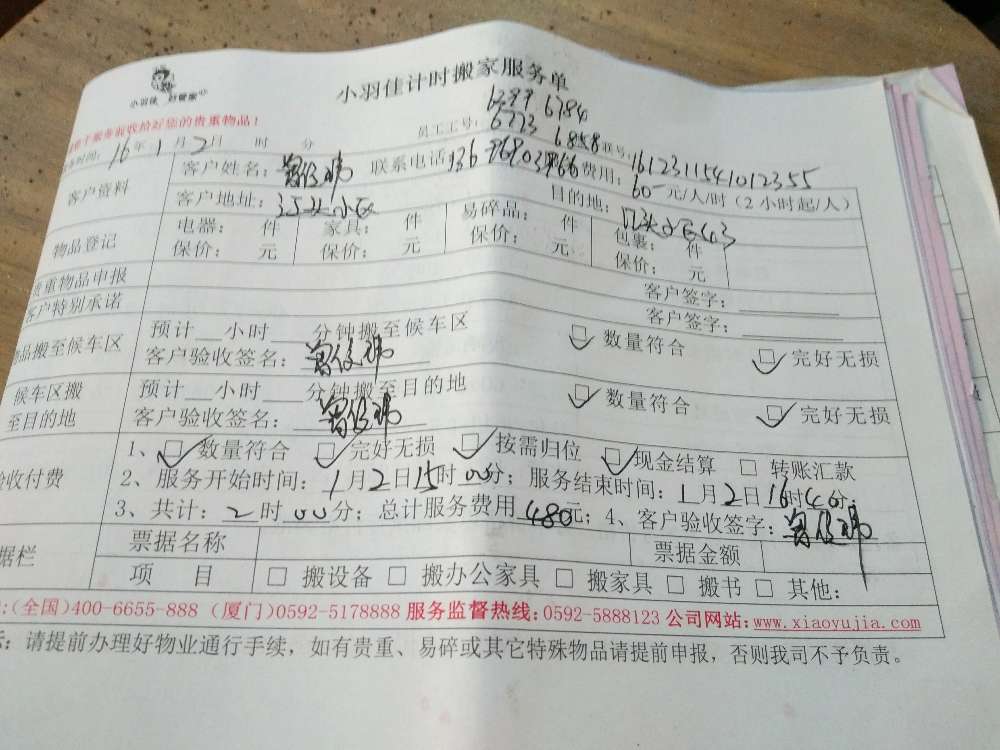 小羽佳计时搬家服务单
小羽佳 好管家
服务前收拾好您的贵重物品！
员工工号： 6299 6784
6773 6858 联号：1612311541012355
时间：16年1月2日 时 分
客户资料 客户姓名： 联系电话 费用：60元/人/时（2小时起/人）
客户地址： 小区 目的地：
物品登记 电器： 件 家具： 件 易碎品： 件 包裹： 件
保价： 元 保价： 元 保价： 元 保价： 元
贵重物品申报 客户签字：
客户特别承诺 客户签字：
物品搬至候车区 预计__小时__分钟搬至候车区 ☑ 数量符合 ☑ 完好无损
客户验收签名：
候车区搬至目的地 预计__小时__分钟搬至目的地 ☑ 数量符合 ☑ 完好无损
客户验收签名：
验收付费 1、☑ 数量符合 ☑ 完好无损 ☑ 按需归位 ☑ 现金结算 □ 转账汇款
2、服务开始时间：1月2日15时00分；服务结束时间：1月2日16时40分；
3、共计：2时00分；总计服务费用480元；4、客户验收签字：
据栏 票据名称 票据金额
项 目 □ 搬设备 □ 搬办公家具 □ 搬家具 □ 搬书 □ 其他：
:(全国)400-6655-888 (厦门)0592-5178888 服务监督热线：0592-5888123 公司网站：www.xiaoyujia.com
示：请提前办理好物业通行手续，如有贵重、易碎或其它特殊物品请提前申报，否则我司不予负责。